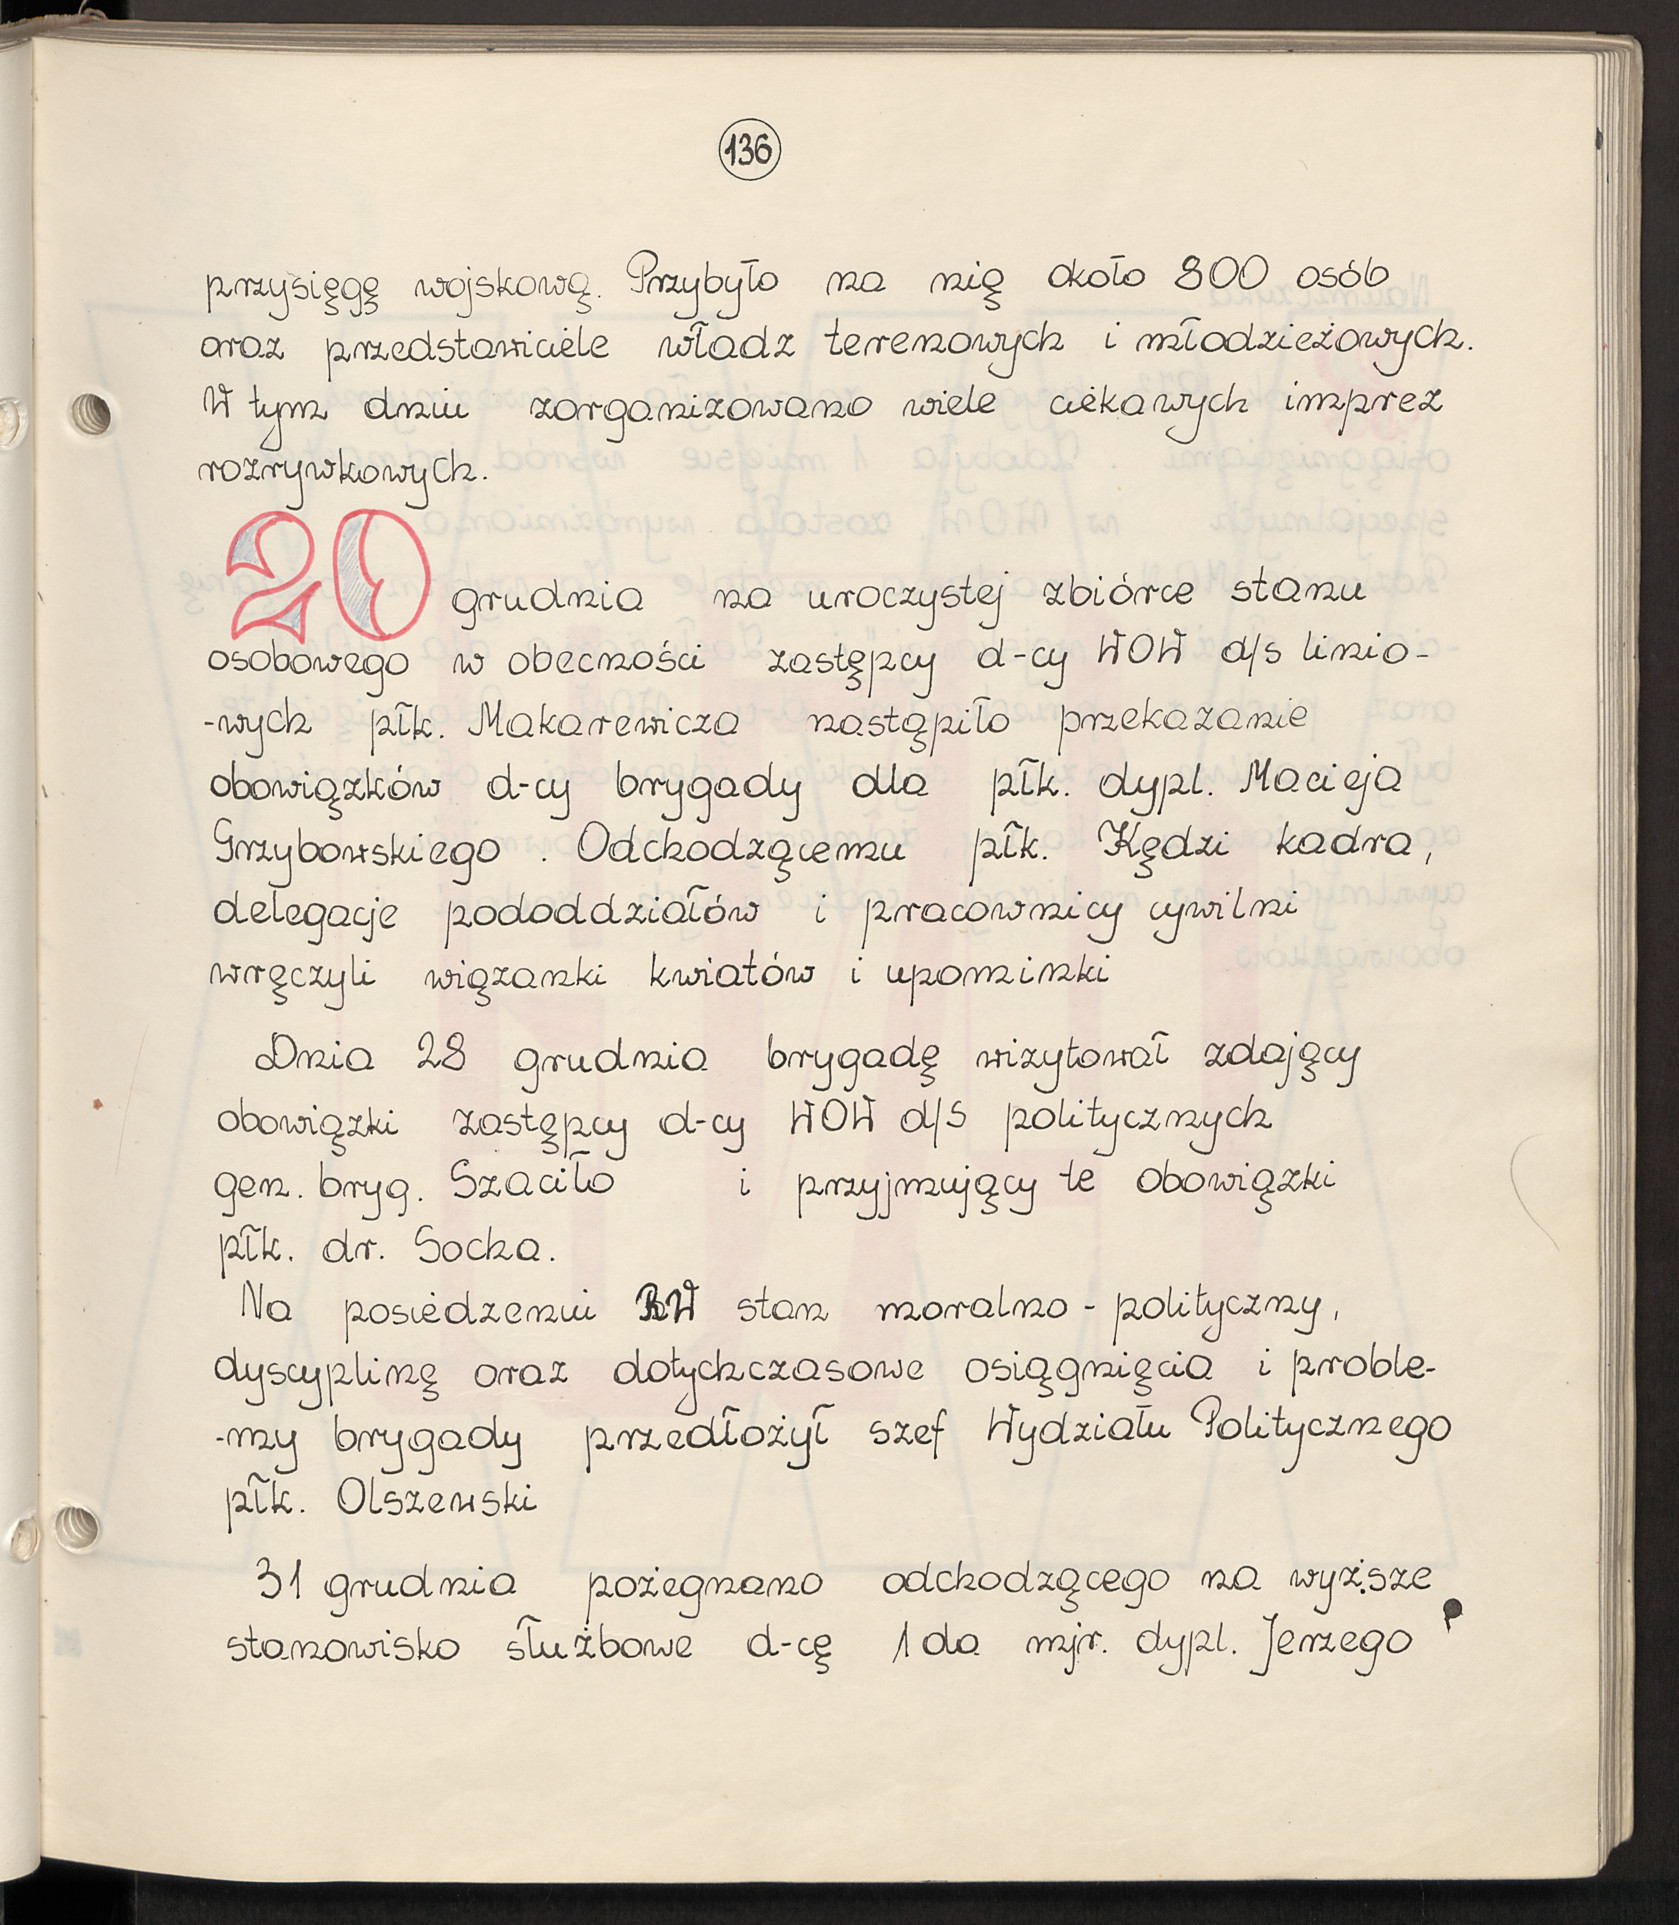 136
przysięgę wojskową. Przybyło na nią około 800 osób
oraz przedstawiciele władz terenowych i młodzieżowych.
W tym dniu zorganizowano wiele ciekawych imprez
rozrywkowych.
20 grudnia na uroczystej zbiórce stanu
osobowego w obecności zastępcy d-cy WOW d/s linio-
-wych płk. Makarewicza nastąpiło przekazanie
obowiązków d-cy brygady dla płk. dypl. Macieja
Grzybowskiego. Odchodzącemu płk. Kędzi kadra,
delegacje pododdziałów i pracownicy cywilni
wręczyli wiązanki kwiatów i upominki
Dnia 28 grudnia brygadę wizytował zdający
obowiązki zastępcy d-cy WOW d/s politycznych
gen. bryg. Szaciło i przyjmujący te obowiązki
płk. dr. Socha.
Na posiedzeniu RW stan moralno-polityczny,
dyscyplinę oraz dotychczasowe osiągnięcia i proble-
-my brygady przedłożył szef Wydziału Politycznego
płk. Olszewski
31 grudnia pożegnano odchodzącego na wyższe
stanowisko służbowe d-cę 1da mjr. dypl. Jerzego